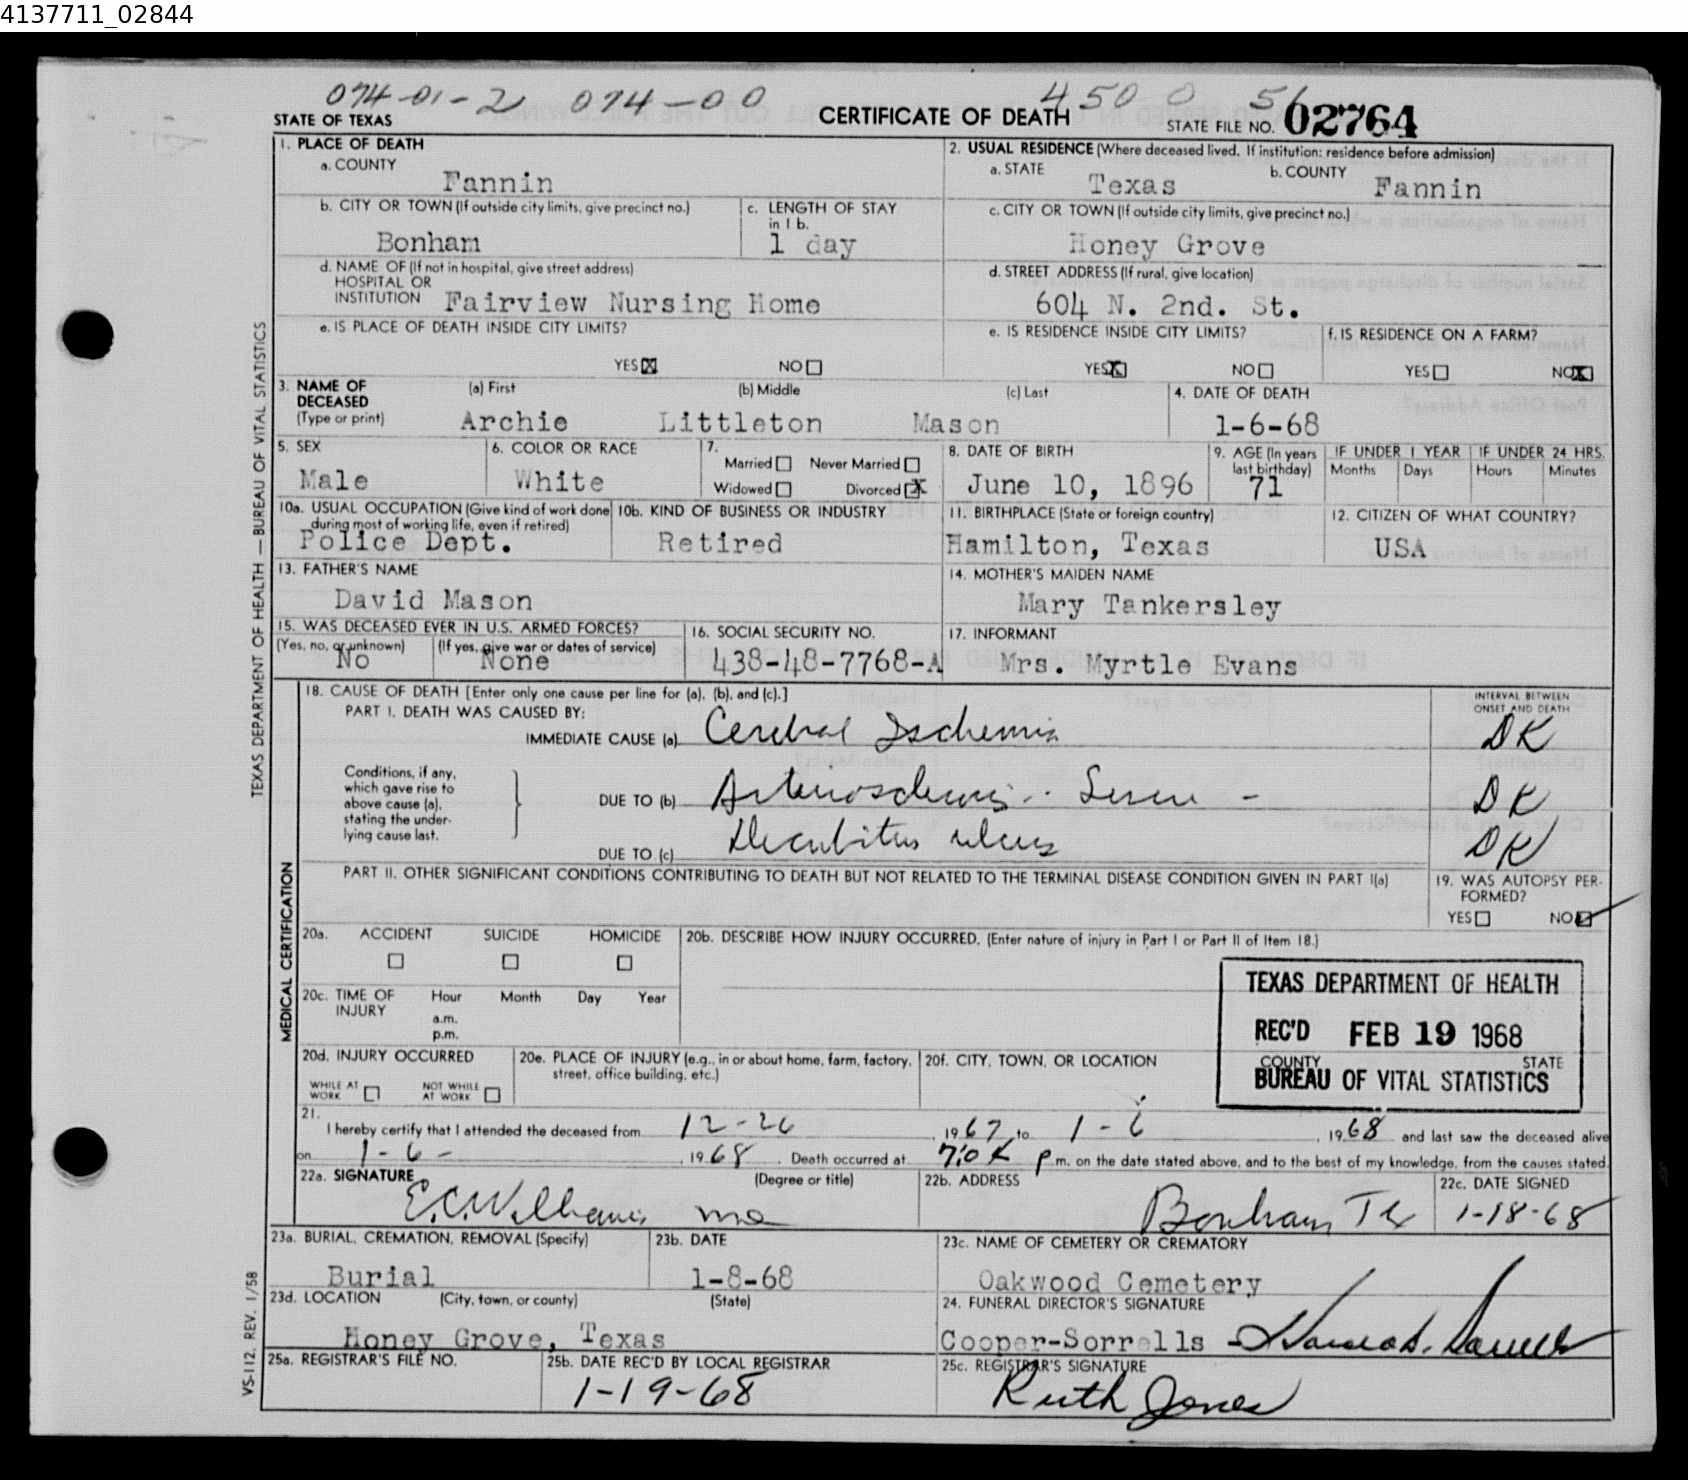 4137711_02844
074-01-2 074-00 450 0 56
STATE OF TEXAS
CERTIFICATE OF DEATH
STATE FILE NO. 02764
1. PLACE OF DEATH
a. COUNTY
Fannin
2. USUAL RESIDENCE (Where deceased lived. If institution: residence before admission)
a. STATE
Texas
b. COUNTY
Fannin
b. CITY OR TOWN (If outside city limits, give precinct no.)
Bonham
c. LENGTH OF STAY
in 1 b.
1 day
c. CITY OR TOWN (If outside city limits, give precinct no.)
Honey Grove
d. NAME OF (If not in hospital, give street address)
HOSPITAL OR
INSTITUTION Fairview Nursing Home
d. STREET ADDRESS (If rural, give location)
604 N. 2nd. St.
e. IS PLACE OF DEATH INSIDE CITY LIMITS?
YES X NO
e. IS RESIDENCE INSIDE CITY LIMITS?
YES X NO
f. IS RESIDENCE ON A FARM?
YES NO X
3. NAME OF
DECEASED
(Type or print)
(a) First
(b) Middle
(c) Last
Archie Littleton Mason
4. DATE OF DEATH
1-6-68
5. SEX
Male
6. COLOR OR RACE
White
7.
Married Never Married
Widowed Divorced X
8. DATE OF BIRTH
June 10, 1896
9. AGE (In years
last birthday)
71
IF UNDER 1 YEAR
Months Days
IF UNDER 24 HRS.
Hours Minutes
10a. USUAL OCCUPATION (Give kind of work done
during most of working life, even if retired)
Police Dept.
10b. KIND OF BUSINESS OR INDUSTRY
Retired
11. BIRTHPLACE (State or foreign country)
Hamilton, Texas
12. CITIZEN OF WHAT COUNTRY?
USA
13. FATHER'S NAME
David Mason
14. MOTHER'S MAIDEN NAME
Mary Tankersley
15. WAS DECEASED EVER IN U.S. ARMED FORCES?
(Yes, no, or unknown) (If yes, give war or dates of service)
No None
16. SOCIAL SECURITY NO.
438-48-7768-A
17. INFORMANT
Mrs. Myrtle Evans
18. CAUSE OF DEATH [Enter only one cause per line for (a), (b), and (c).]
PART I. DEATH WAS CAUSED BY:
IMMEDIATE CAUSE (a) Cerebral Ischemia
INTERVAL BETWEEN
ONSET AND DEATH
DK
Conditions, if any,
which gave rise to
above cause (a),
stating the under-
lying cause last.
DUE TO (b) Arteriosclerosis - Severe -
DK
DUE TO (c) Decubitus ulcers
DK
PART II. OTHER SIGNIFICANT CONDITIONS CONTRIBUTING TO DEATH BUT NOT RELATED TO THE TERMINAL DISEASE CONDITION GIVEN IN PART I(a)
19. WAS AUTOPSY PER-
FORMED?
YES NO
20a. ACCIDENT SUICIDE HOMICIDE
20b. DESCRIBE HOW INJURY OCCURRED. (Enter nature of injury in Part I or Part II of Item 18.)
20c. TIME OF
INJURY
Hour Month Day Year
a.m.
p.m.
TEXAS DEPARTMENT OF HEALTH
REC'D FEB 19 1968
BUREAU OF VITAL STATISTICS
20d. INJURY OCCURRED
WHILE AT
WORK
NOT WHILE
AT WORK
20e. PLACE OF INJURY (e.g., in or about home, farm, factory,
street, office building, etc.)
20f. CITY, TOWN, OR LOCATION
COUNTY
STATE
21.
I hereby certify that I attended the deceased from 12-26, 1967, to 1-6, 1968 and last saw the deceased alive
on 1-6-, 1968. Death occurred at 7:0 p.m. on the date stated above, and to the best of my knowledge, from the causes stated.
22a. SIGNATURE
(Degree or title)
E.C. Williams MD
22b. ADDRESS
Bonham, Tex
22c. DATE SIGNED
1-18-68
23a. BURIAL, CREMATION, REMOVAL (Specify)
Burial
23b. DATE
1-8-68
23c. NAME OF CEMETERY OR CREMATORY
Oakwood Cemetery
23d. LOCATION (City, town, or county) (State)
Honey Grove, Texas
24. FUNERAL DIRECTOR'S SIGNATURE
Cooper-Sorrells
25a. REGISTRAR'S FILE NO.
25b. DATE REC'D BY LOCAL REGISTRAR
1-19-68
25c. REGISTRAR'S SIGNATURE
Ruth Jones
TEXAS DEPARTMENT OF HEALTH — BUREAU OF VITAL STATISTICS
MEDICAL CERTIFICATION
VS-112, REV. 1/58